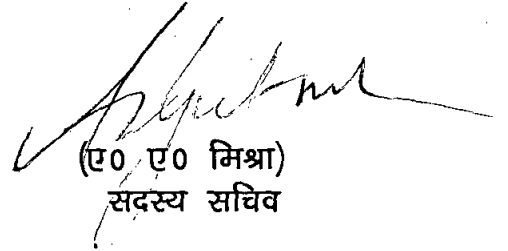 (ए० ए० मिश्रा)
सदस्य सचिव